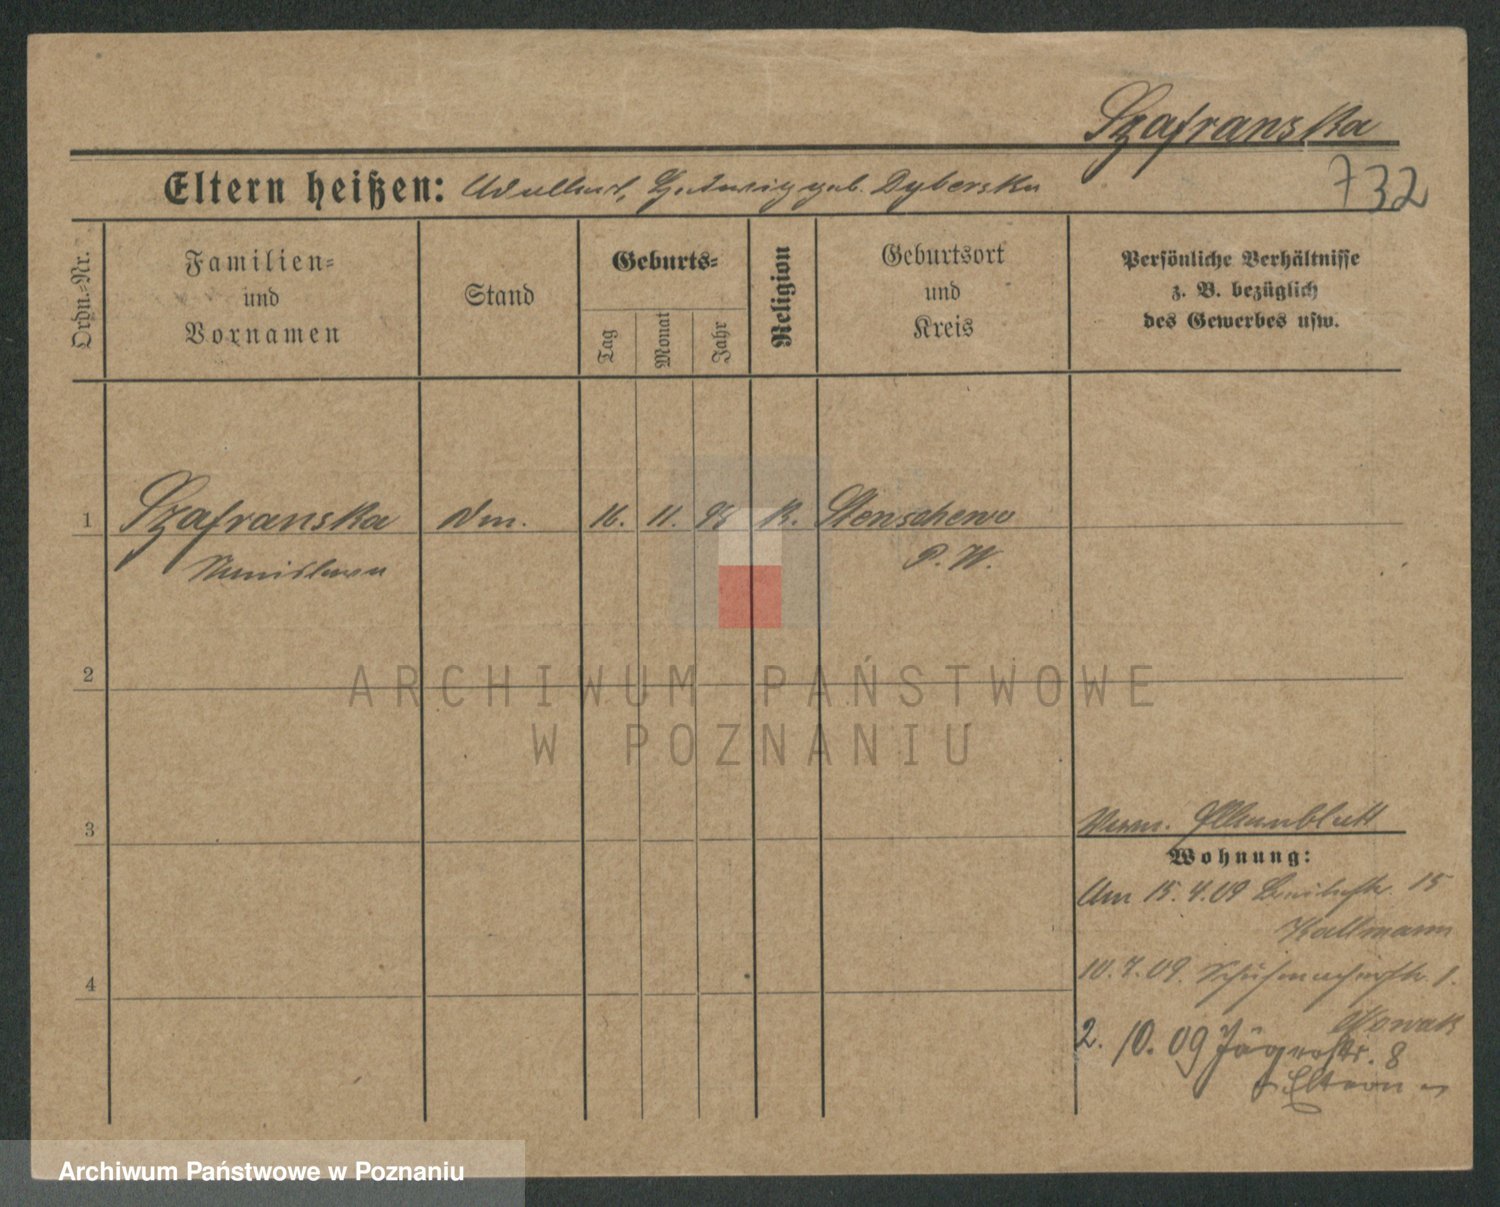 Szafranska
Eltern heißen: Adalbert, Hedwig geb. Dyberska
732
Ordn.-Nr.
Familien-
und
Vornamen
Stand
Geburts-
Tag
Monat
Jahr
Religion
Geburtsort
und
Kreis
Persönliche Verhältnisse
z. B. bezüglich
des Gewerbes usw.
1 Szafranska 16. 11. K. Stenschewo
Stanislawa P. W.
2
3
4
Elternblatt
Wohnung:
Am 15. 4. 09 15
Kallmann
10. 7. 09. Schuhmacherstr. 1.
Nowak
2. 10. 09 Jägerstr. 8
Eltern
ARCHIWUM PAŃSTWOWE
W POZNANIU
Archiwum Państwowe w Poznaniu